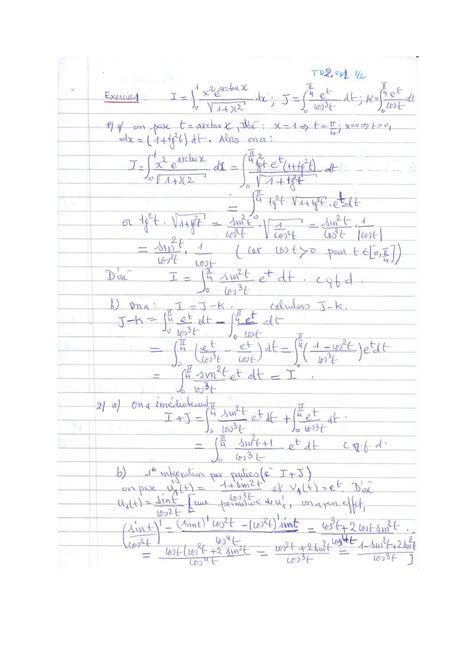 TD2, ex1 1/2
Exercice1 I = ∫₀¹ x² e^(arctan x) / √(1+x²) dx ; J = ∫₀^(π/4) e^t / cos³t dt ; K = ∫₀^(π/4) e^t / cos t dt
1) a) on pose t = arctan x, D'où : x=1 → t = π/4 ; x=0 → t=0,
dx = (1+tg²t) dt. Alors on a :
I = ∫₀¹ x² e^(arctan x) / √(1+x²) dx = ∫₀^(π/4) tg²t e^t (1+tg²t) / √(1+tg²t) dt
= ∫₀^(π/4) tg²t √(1+tg²t) e^t dt
or tg²t · √(1+tg²t) = sin²t / cos²t · √(1/cos²t) = sin²t / cos²t · 1/|cos t|
= sin²t / cos²t · 1/cos t ( car cos t > 0 pour t ∈ [0, π/4] )
D'où I = ∫₀^(π/4) sin²t / cos³t e^t dt . cqfd.
b) on a : I = J-K . calculons J-K.
J-K = ∫₀^(π/4) e^t / cos³t dt - ∫₀^(π/4) e^t / cos t dt
= ∫₀^(π/4) ( e^t / cos³t - e^t / cos t ) dt = ∫₀^(π/4) ( 1-cos²t / cos³t ) e^t dt
= ∫₀^(π/4) sin²t / cos³t e^t dt = I .
2) a) on a imédiatement
I+J = ∫₀^(π/4) sin²t / cos³t e^t dt + ∫₀^(π/4) e^t / cos³t dt.
= ∫₀^(π/4) sin²t+1 / cos³t e^t dt cqfd.
b) intégration par parties ( I+J )
on pose u₁'(t) = 1+sin²t / cos³t et v₁(t) = e^t. D'où
u₁(t) = sin t / cos²t [ une primitive de u₁', on a en effet,
( sin t / cos²t )' = (sin t)' cos²t - (cos²t)' sin t / cos⁴t = cos³t + 2 cos t sin²t / cos⁴t .
= cos t (cos²t + 2 sin²t) / cos⁴t = cos²t + 2 sin²t / cos³t = 1 - sin²t + 2 sin²t / cos³t ]